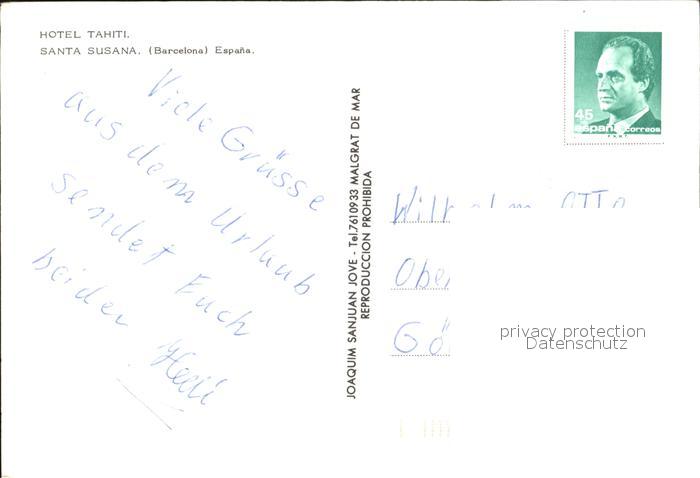 HOTEL TAHITI.
SANTA SUSANA. (Barcelona) España.
Viele Grüsse
aus dem Urlaub
sendet Euch
beiden
JOAQUIM SANJUAN JOVE - Tel.7610933 MALGRAT DE MAR
REPRODUCCION PROHIBIDA
45
españa correos
Wilhelm OTTO
privacy protection
Datenschutz